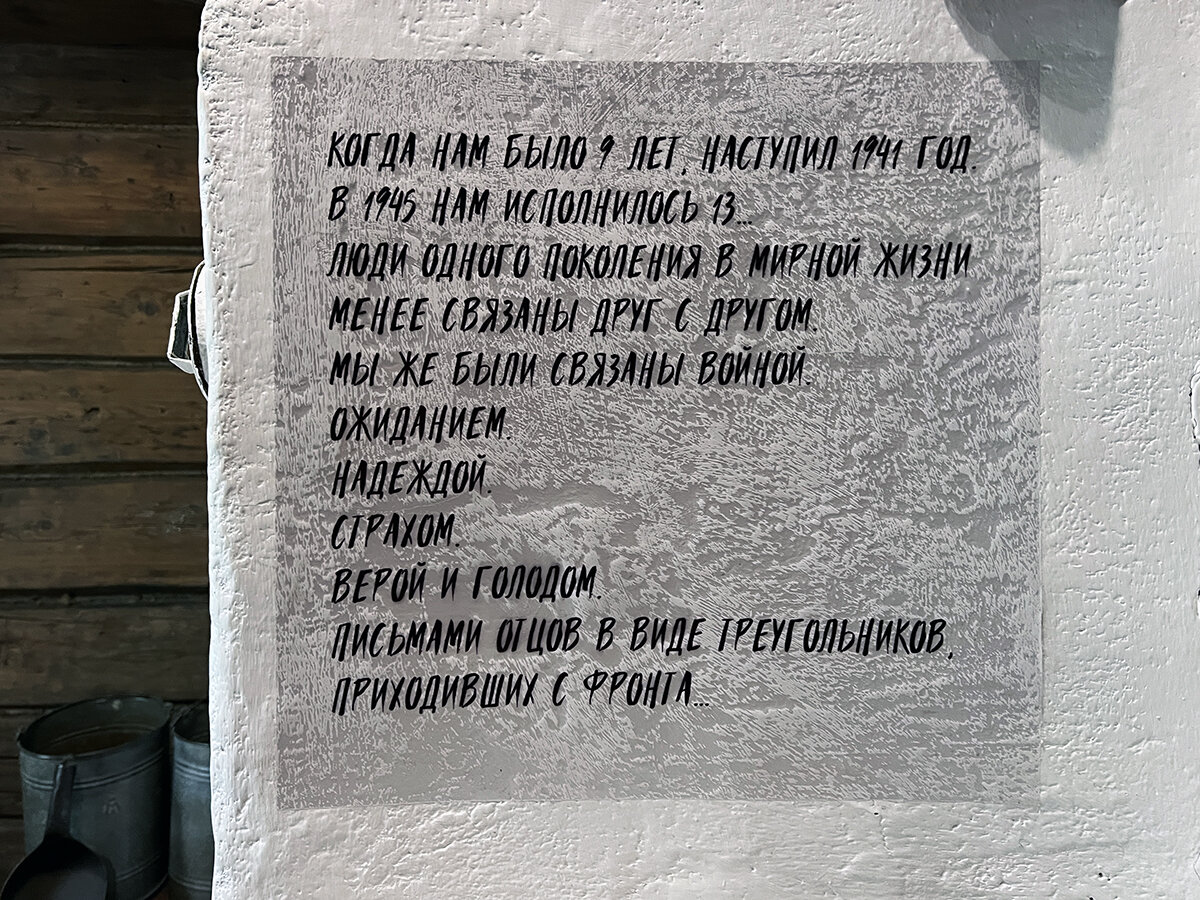 КОГДА НАМ БЫЛО 9 ЛЕТ, НАСТУПИЛ 1941 ГОД.
В 1945 НАМ ИСПОЛНИЛОСЬ 13...
ЛЮДИ ОДНОГО ПОКОЛЕНИЯ В МИРНОЙ ЖИЗНИ
МЕНЕЕ СВЯЗАНЫ ДРУГ С ДРУГОМ.
МЫ ЖЕ БЫЛИ СВЯЗАНЫ ВОЙНОЙ.
ОЖИДАНИЕМ.
НАДЕЖДОЙ.
СТРАХОМ.
ВЕРОЙ И ГОЛОДОМ.
ПИСЬМАМИ ОТЦОВ В ВИДЕ ТРЕУГОЛЬНИКОВ,
ПРИХОДИВШИХ С ФРОНТА...